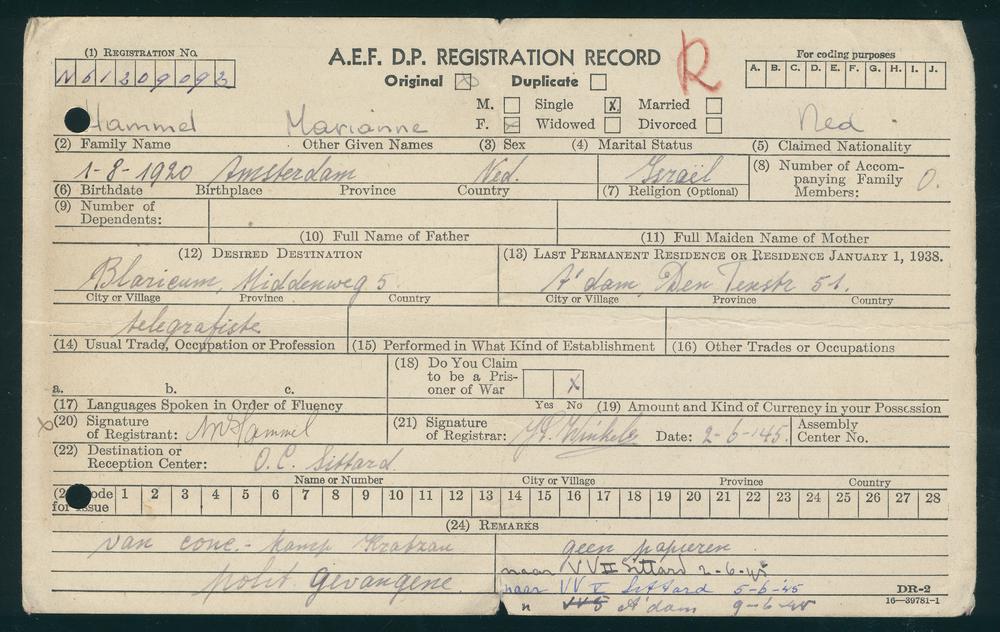 (1) REGISTRATION NO.
N61209092
A.E.F. D.P. REGISTRATION RECORD
Original Duplicate
R
For coding purposes
A. B. C. D. E. F. G. H. I. J.
Hammel Marianne
M. Single x Married
F. Widowed Divorced
Ned.
(2) Family Name Other Given Names (3) Sex (4) Marital Status (5) Claimed Nationality
1-8-1920 Amsterdam Ned. Israël
(8) Number of Accompanying Family Members: 0.
(6) Birthdate Birthplace Province Country (7) Religion (Optional)
(9) Number of Dependents:
(10) Full Name of Father (11) Full Maiden Name of Mother
(12) DESIRED DESTINATION (13) LAST PERMANENT RESIDENCE OR RESIDENCE JANUARY 1, 1938.
Blaricum, Middenweg 5. A'dam, Den Texstr 51.
City or Village Province Country City or Village Province Country
telegrafiste
(14) Usual Trade, Occupation or Profession (15) Performed in What Kind of Establishment (16) Other Trades or Occupations
(18) Do You Claim
to be a Pris-
oner of War x
a. b. c. Yes No
(17) Languages Spoken in Order of Fluency (19) Amount and Kind of Currency in your Possession
x (20) Signature
of Registrant: MHammel
(21) Signature
of Registrar: Date: 2-6-'45.
Assembly
Center No.
(22) Destination or
Reception Center: O.C. Sittard.
Name or Number City or Village Province Country
(2 ode
for Issue
1 2 3 4 5 6 7 8 9 10 11 12 13 14 15 16 17 18 19 20 21 22 23 24 25 26 27 28
(24) REMARKS
van conc.- kamp Kratzau geen papieren
polit. gevangene. naar VV II Sittard 2-6-45
naar VV V Sittard 5-6-45
n VV5 A'dam 9-6-45
DR-2
16—39781-1